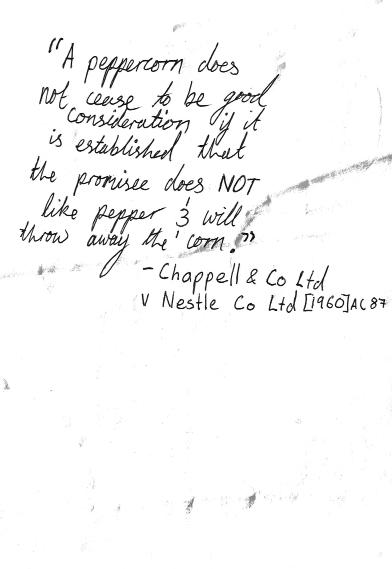 "A peppercorn does
not cease to be good
consideration if it
is established that
the promisee does NOT
like pepper & will
throw away the corn."
- Chappell & Co Ltd
v Nestle Co Ltd [1960] AC 87